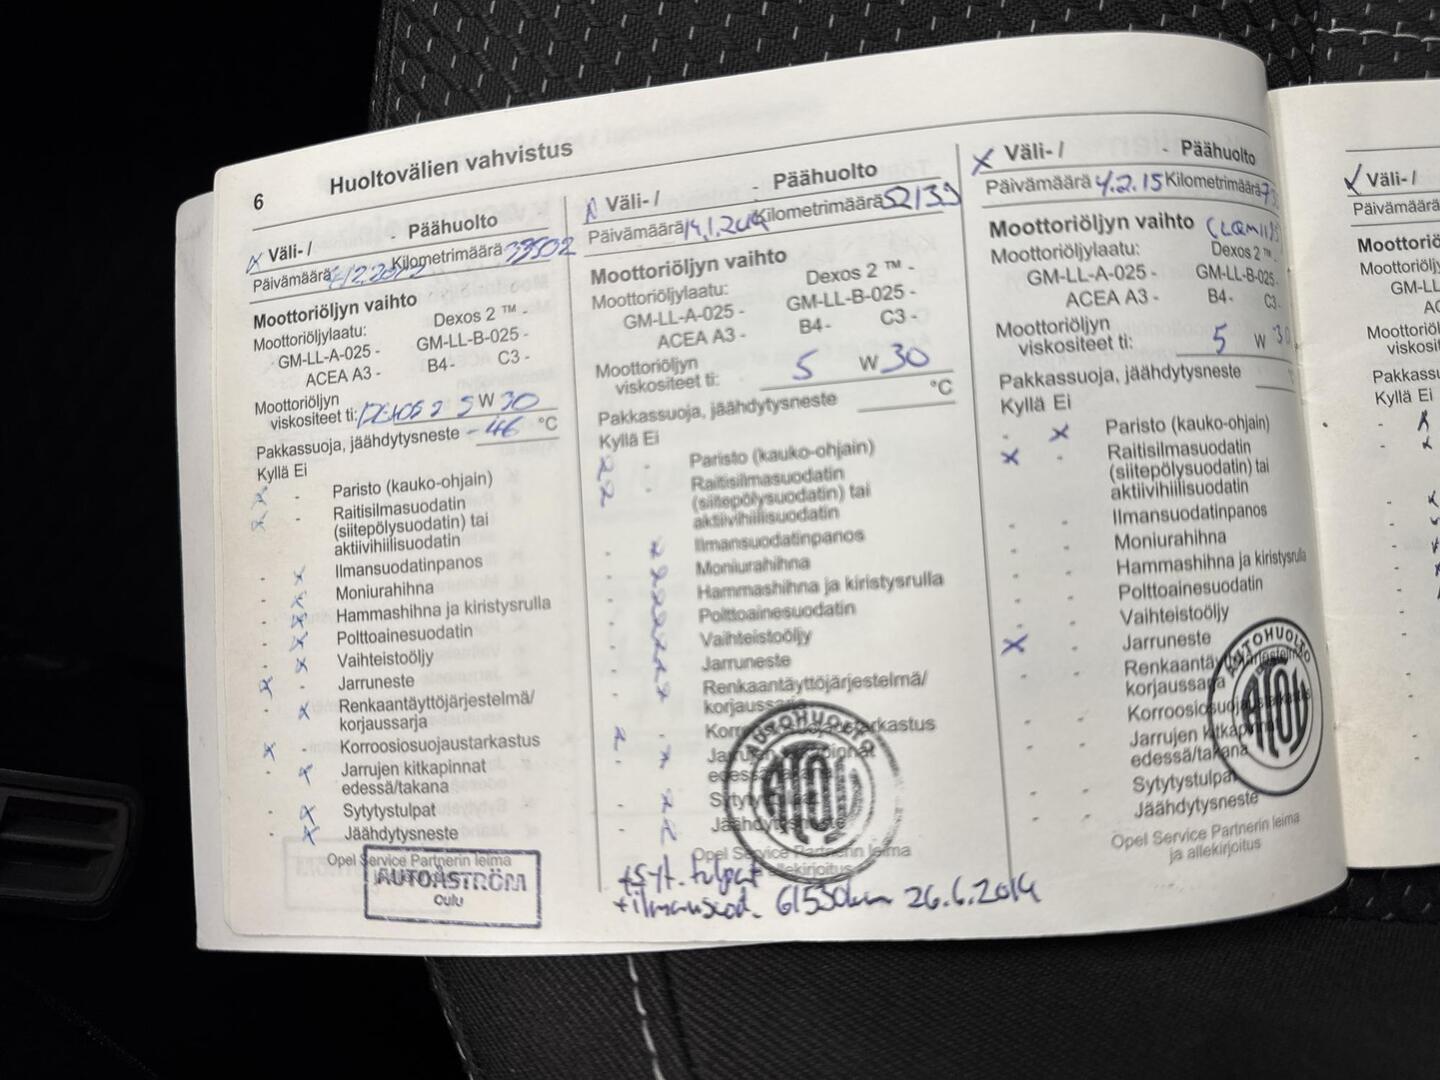 6 Huoltovälien vahvistus
x Väli- / - Päähuolto
Päivämäärä Kilometrimäärä
Moottoriöljyn vaihto
Moottoriöljylaatu: Dexos 2 ™ -
GM-LL-A-025 - GM-LL-B-025 -
ACEA A3 - B4- C3 -
Moottoriöljyn
viskositeet ti: 5 W 30
Pakkassuoja, jäähdytysneste -46 °C
Kyllä Ei
Paristo (kauko-ohjain)
Raitisilmasuodatin
(siitepölysuodatin) tai
aktiivihiilisuodatin
Ilmansuodatinpanos
Moniurahihna
Hammashihna ja kiristysrulla
Polttoainesuodatin
Vaihteistoöljy
Jarruneste
Renkaantäyttöjärjestelmä/
korjaussarja
Korroosiosuojaustarkastus
Jarrujen kitkapinnat
edessä/takana
Sytytystulpat
Jäähdytysneste
Opel Service Partnerin leima
AUTOÅSTRÖM
Oulu
Väli- / - Päähuolto
Päivämäärä Kilometrimäärä 52139
Moottoriöljyn vaihto
Moottoriöljylaatu: Dexos 2 ™ -
GM-LL-A-025 - GM-LL-B-025 -
ACEA A3 - B4- C3 -
Moottoriöljyn
viskositeet ti: 5 W 30
Pakkassuoja, jäähdytysneste °C
Kyllä Ei
Paristo (kauko-ohjain)
Raitisilmasuodatin
(siitepölysuodatin) tai
aktiivihiilisuodatin
Ilmansuodatinpanos
Moniurahihna
Hammashihna ja kiristysrulla
Polttoainesuodatin
Vaihteistoöljy
Jarruneste
Renkaantäyttöjärjestelmä/
korjaussarja
edessä
AUTOHUOLTO
ATOY
Opel Service Partnerin leima
allekirjoitus
+syt. tulpat
+ilmansuod. 61530km 26.6.2014
x Väli- / - Päähuolto
Päivämäärä 4.2.15 Kilometrimäärä
Moottoriöljyn vaihto
Moottoriöljylaatu: Dexos 2 ™
GM-LL-A-025 - GM-LL-B-025-
ACEA A3 - B4- C3-
Moottoriöljyn
viskositeet ti: 5 W 30
Pakkassuoja, jäähdytysneste
Kyllä Ei
Paristo (kauko-ohjain)
Raitisilmasuodatin
(siitepölysuodatin) tai
aktiivihiilisuodatin
Ilmansuodatinpanos
Moniurahihna
Hammashihna ja kiristysrulla
Polttoainesuodatin
Vaihteistoöljy
Jarruneste
korjaussarja
Jarrujen
edessä/takana
Sytytystulpat
Jäähdytysneste
AUTOHUOLTO
ATOY
Opel Service Partnerin leima
ja allekirjoitus
Väli- /
Päivämäärä
Kyllä Ei